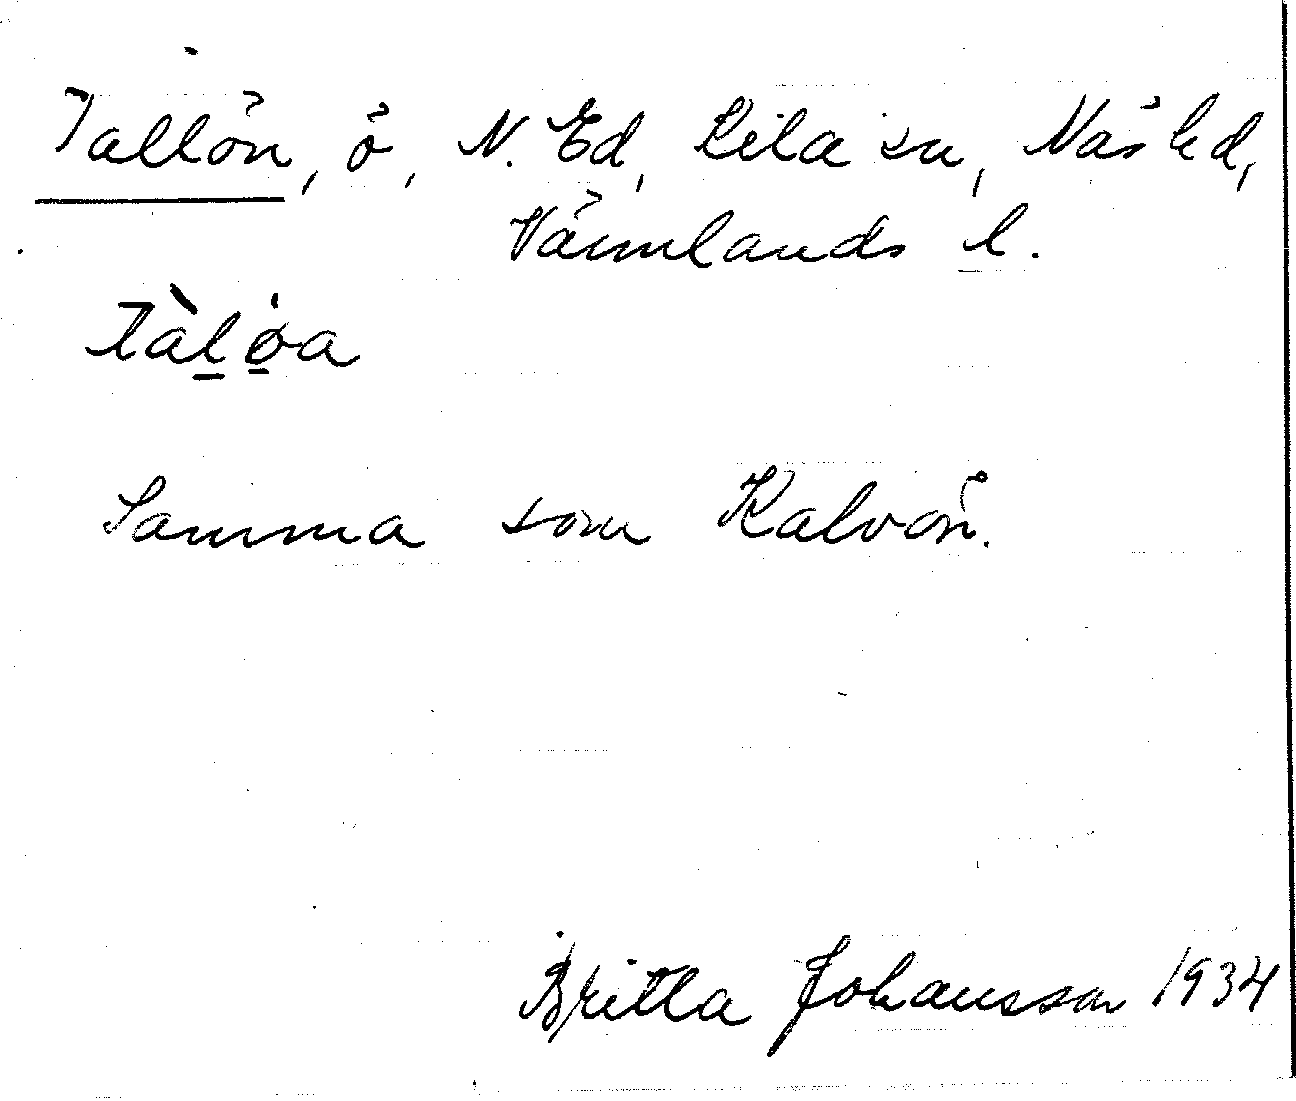 Tallön, ö, N. Ed, Kila sn, Näs hd,
Värmlands l.
tàl̠ǿ̠a
Samma som Kalvön.
Britta Johansson 1934